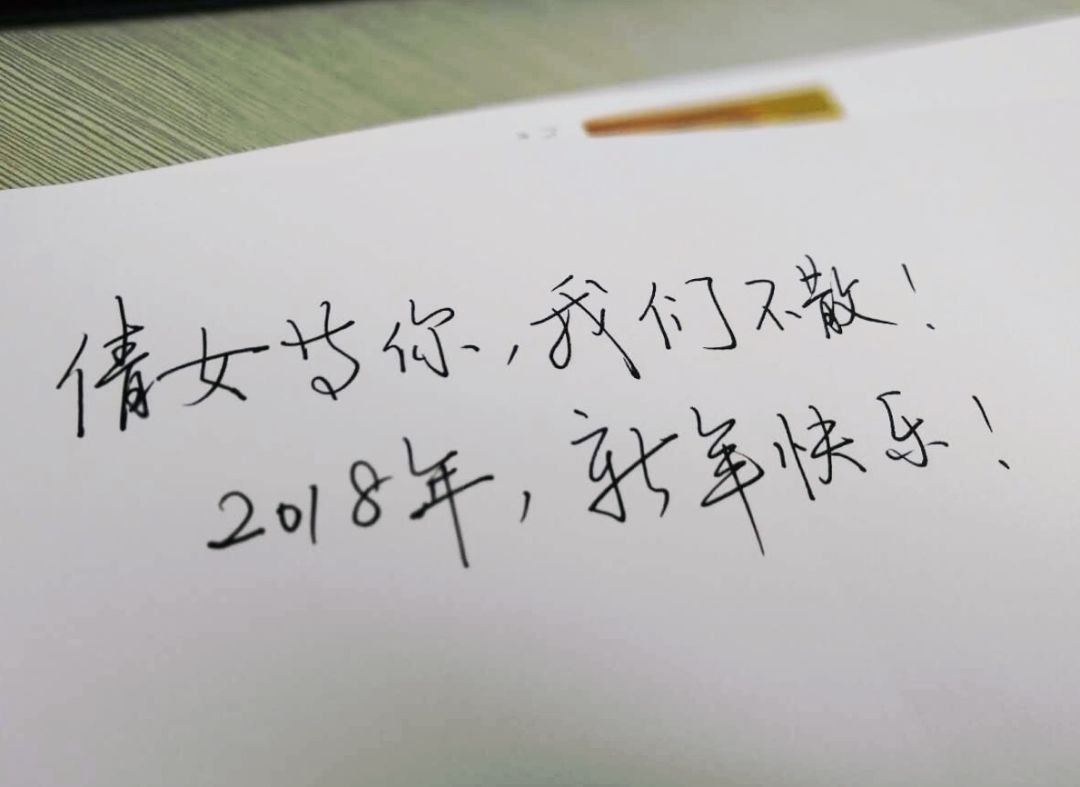 倩女等你，我们不散！
2018年，新年快乐！